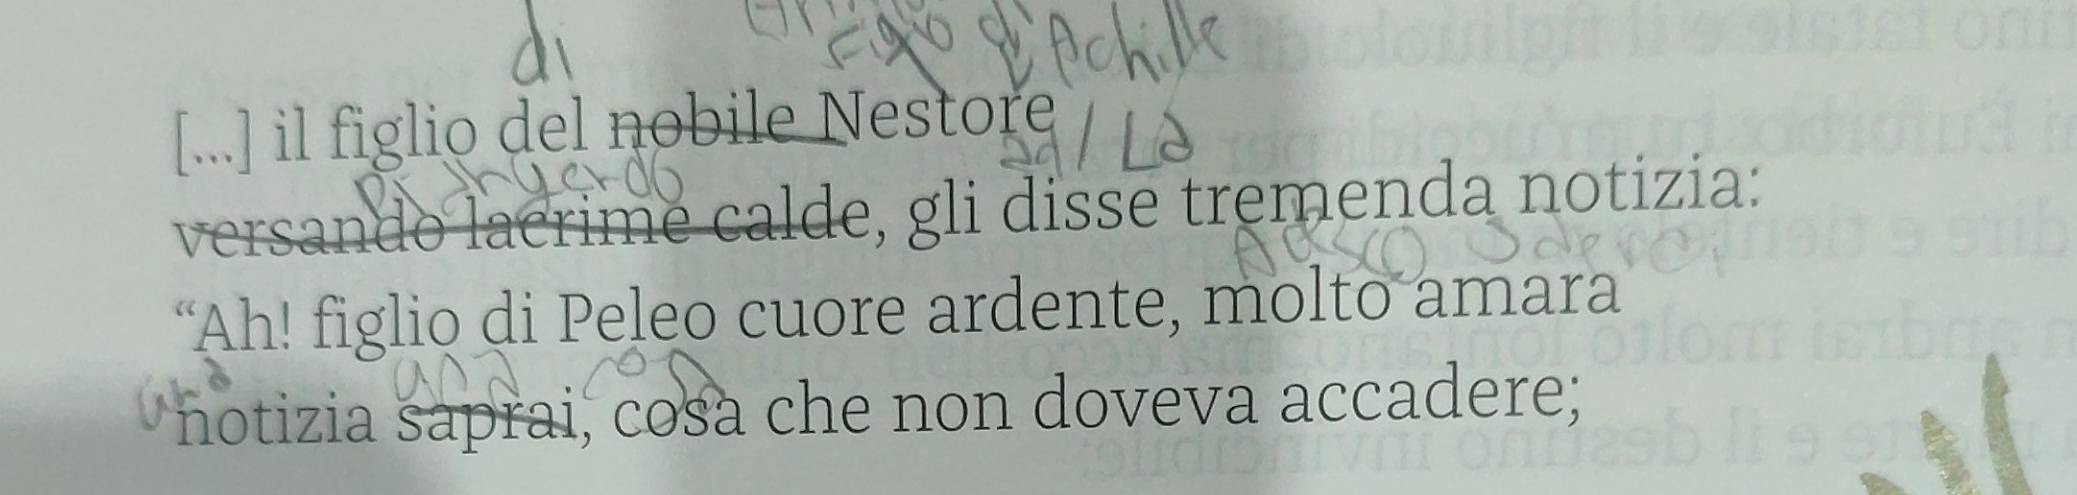 di figlio di Achille
[...] il figlio del nobile Nestore
Piangendo ad / La
versando lacrime calde, gli disse tremenda notizia:
Adesso
“Ah! figlio di Peleo cuore ardente, molto amara
una una cosa
notizia saprai, cosa che non doveva accadere;